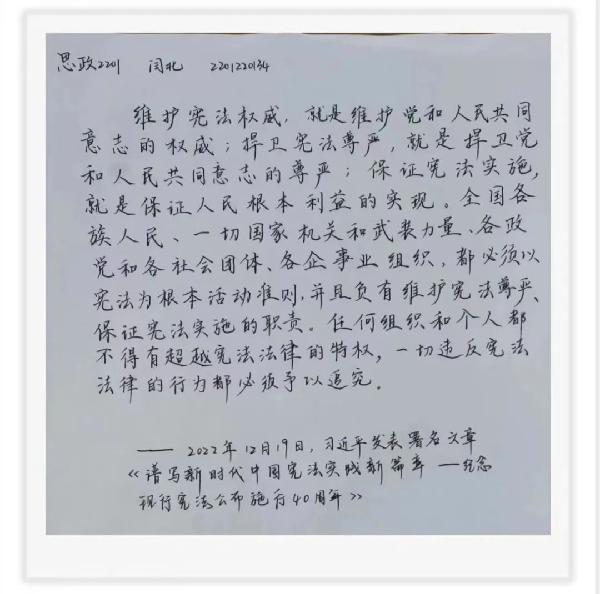 思政2201 闫北 2201220134
维护宪法权威，就是维护党和人民共同
意志的权威；捍卫宪法尊严，就是捍卫党
和人民共同意志的尊严；保证宪法实施，
就是保证人民根本利益的实现。全国各
族人民、一切国家机关和武装力量、各政
党和各社会团体、各企事业组织，都必须以
宪法为根本活动准则，并且负有维护宪法尊严、
保证宪法实施的职责。任何组织和个人都
不得有超越宪法法律的特权，一切违反宪法
法律的行为都必须予以追究。
—— 2022年12月19日，习近平发表署名文章
《谱写新时代中国宪法实践新篇章——纪念
现行宪法公布施行40周年》